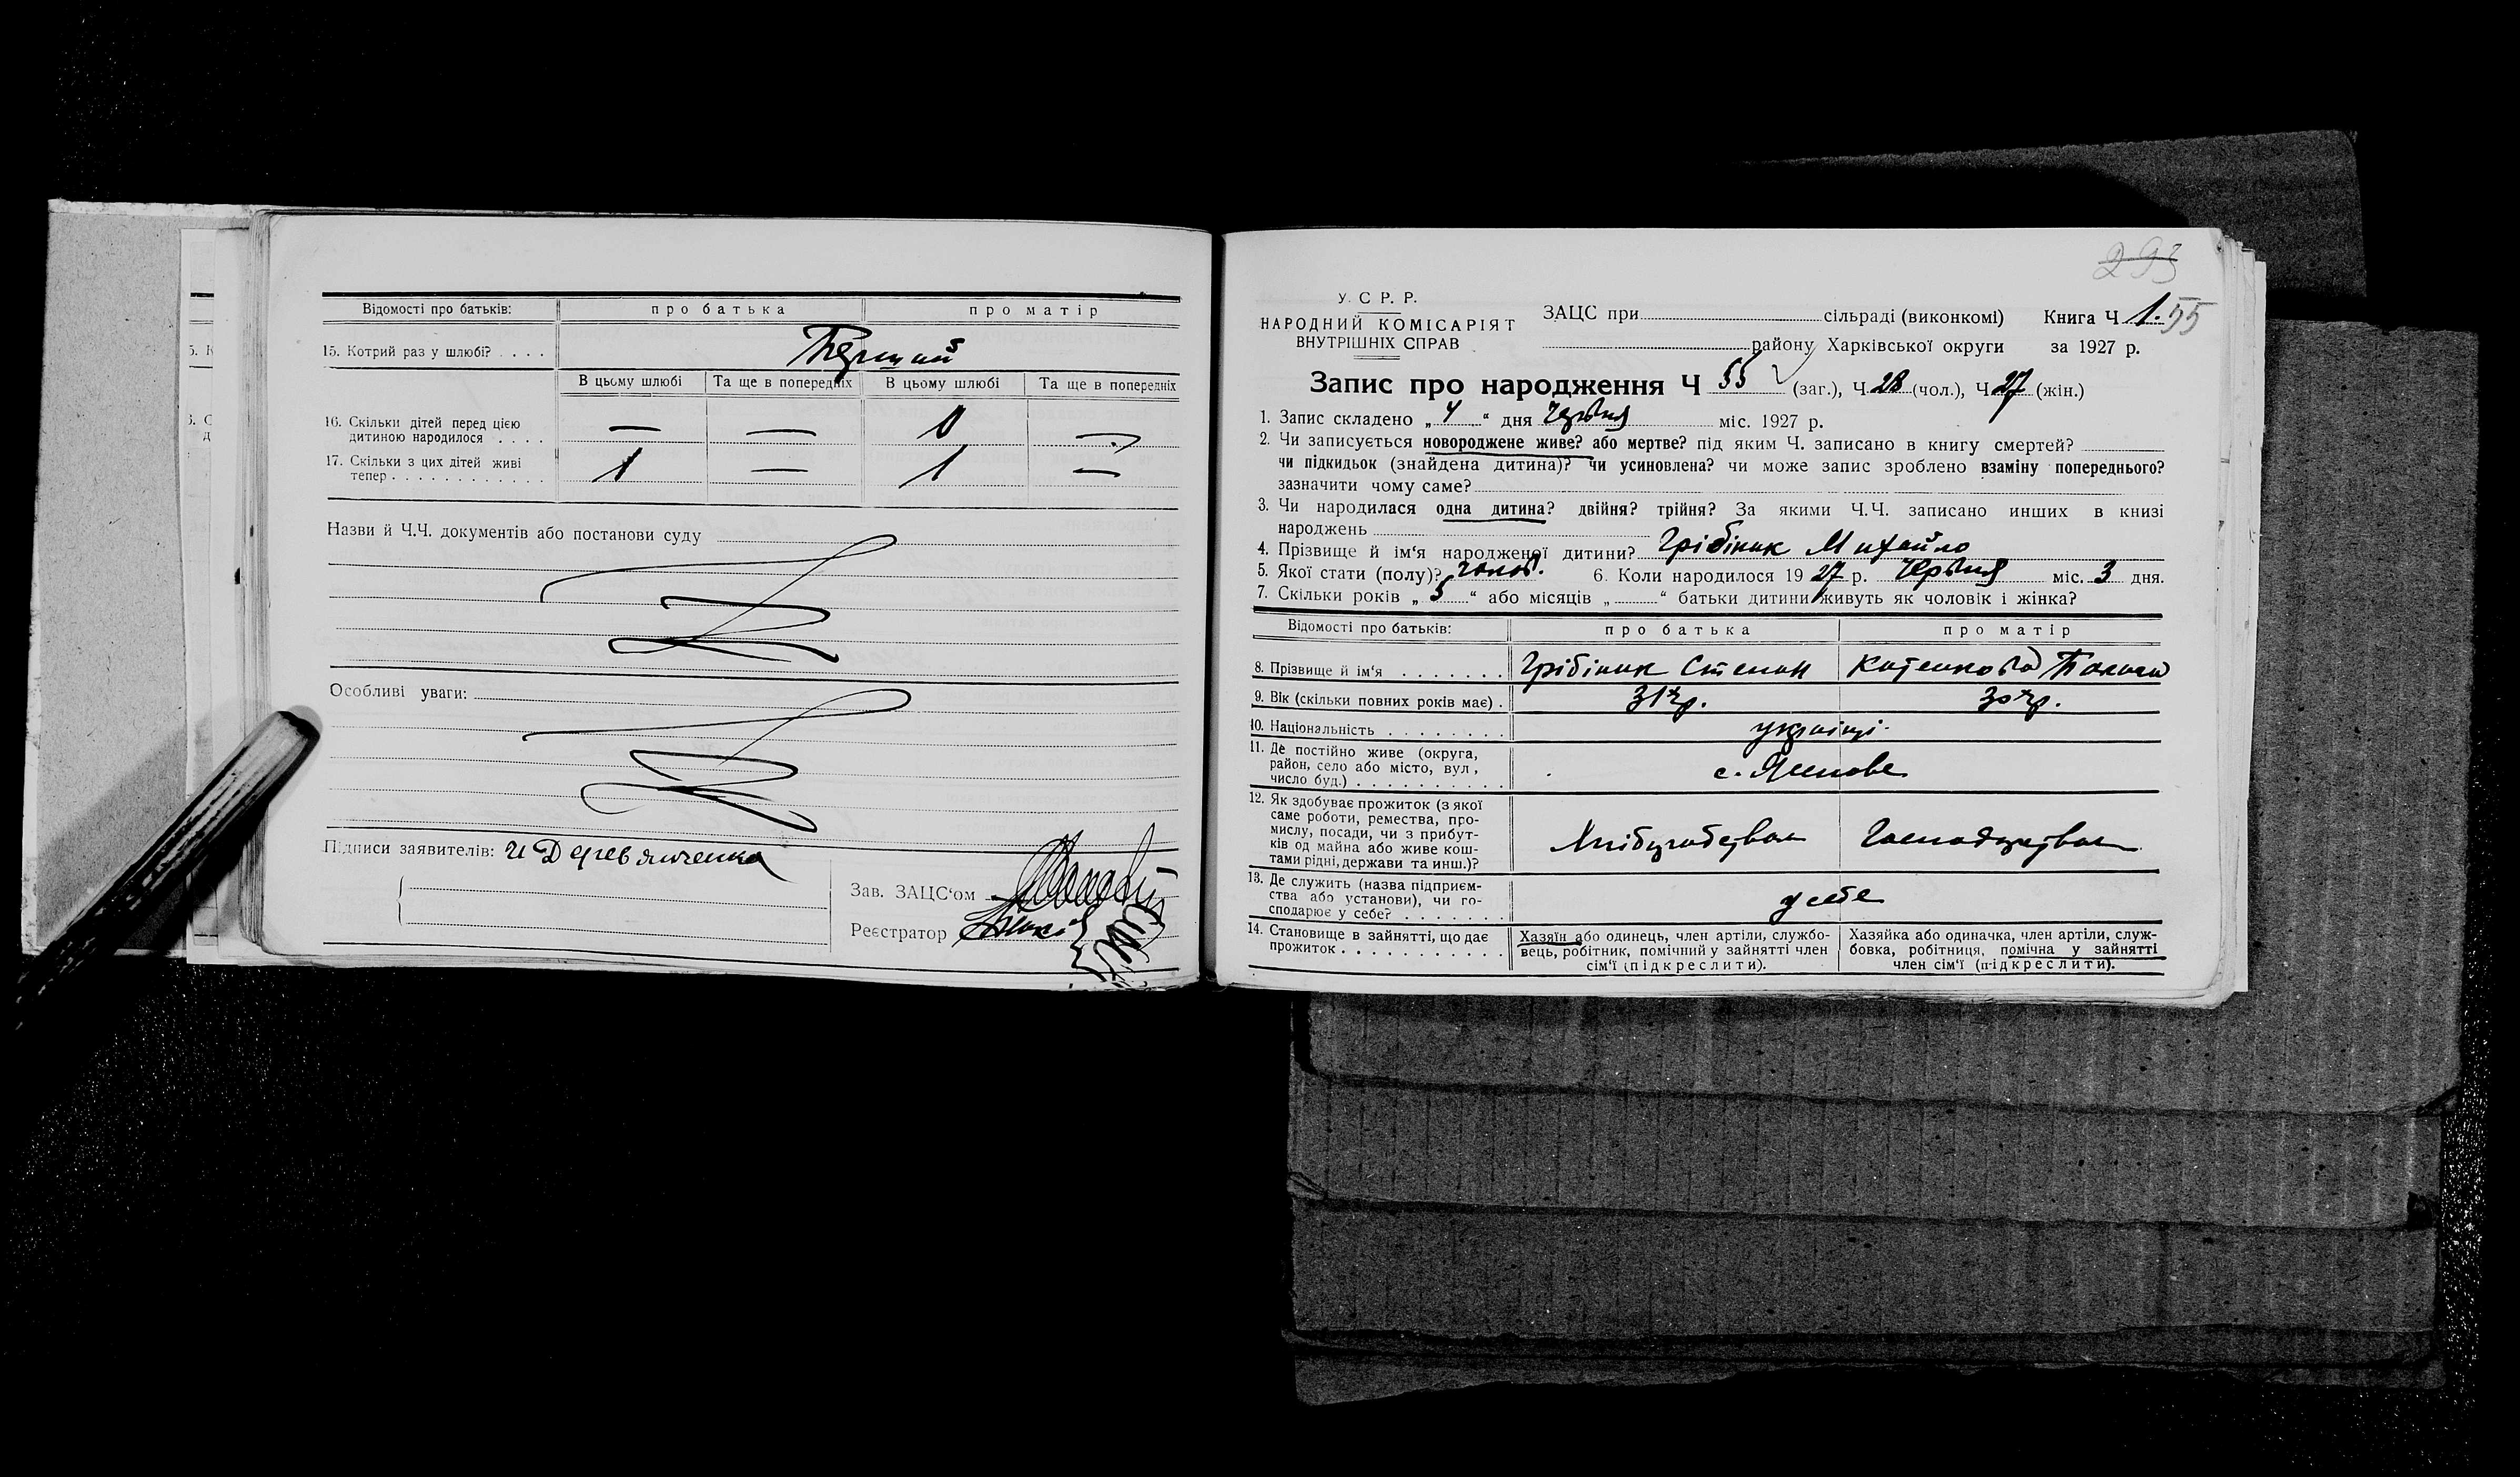 Відомості про батьків: про батька про матір
15. Котрий раз у шлюбі? . . . . Перший
В цьому шлюбі Та ще в попередніх В цьому шлюбі Та ще в попередніх
16. Скільки дітей перед цією
дитиною народилося . . . . — — 0 —
17. Скільки з цих дітей живі
тепер . . . . . . . . . . . . 1 — 1 —
Назви й Ч.Ч. документів або постанови суду
Особливі уваги:
Підписи заявителів: И Деревянченко
Зав. ЗАЦС‘ом
Реєстратор
293
У. С. Р. Р.
НАРОДНИЙ КОМІСАРІЯТ
ВНУТРІШНІХ СПРАВ
ЗАЦС при сільраді (виконкомі) Книга Ч 1. 55
району Харківської округи за 1927 р.
Запис про народження Ч 55 (заг.), Ч 28 (чол.), Ч 27 (жін.)
1. Запис складено „ 4 “ дня Червня міс. 1927 р.
2. Чи записується новороджене живе? або мертве? під яким Ч. записано в книгу смертей?
чи підкидьок (знайдена дитина)? чи усиновлена? чи може запис зроблено взаміну попереднього?
зазначити чому саме?
3. Чи народилася одна дитина? двійня? трійня? За якими Ч.Ч. записано инших в книзі
народжень
4. Прізвище й ім‘я народженої дитини? Грібіник Михайло
5. Якої стати (полу)? чолов. 6. Коли народилося 19 27 р. Червня міс. 3 дня.
7. Скільки років „ 5 “ або місяців „ “ батьки дитини живуть як чоловік і жінка?
Відомості про батьків: про батька про матір
8. Прізвище й ім‘я . . . . . . . Грібіник Степан
9. Вік (скільки повних років має) . 31 р. 30 р.
10. Національність . . . . . . . . українці
11. Де постійно живе (округа,
район, село або місто, вул,
число буд.) . . . . . . . . . . с.
12. Як здобуває прожиток (з якої
саме роботи, ремества, про-
мислу, посади, чи з прибут-
ків од майна або живе кош-
тами рідні, держави та инш.)? Хліборобство Господарство
13. Де служить (назва підприєм-
ства або установи), чи го-
сподарює у себе? . . . . . . . у себе
14. Становище в зайнятті, що дає
прожиток . . . . . . . . . . .
Хазяїн або одинець, член артіли, службо-
вець, робітник, помічний у зайнятті член
сім‘ї (підкреслити).
Хазяйка або одиначка, член артіли, служ-
бовка, робітниця, помічна у зайнятті
член сім‘ї (підкреслити).